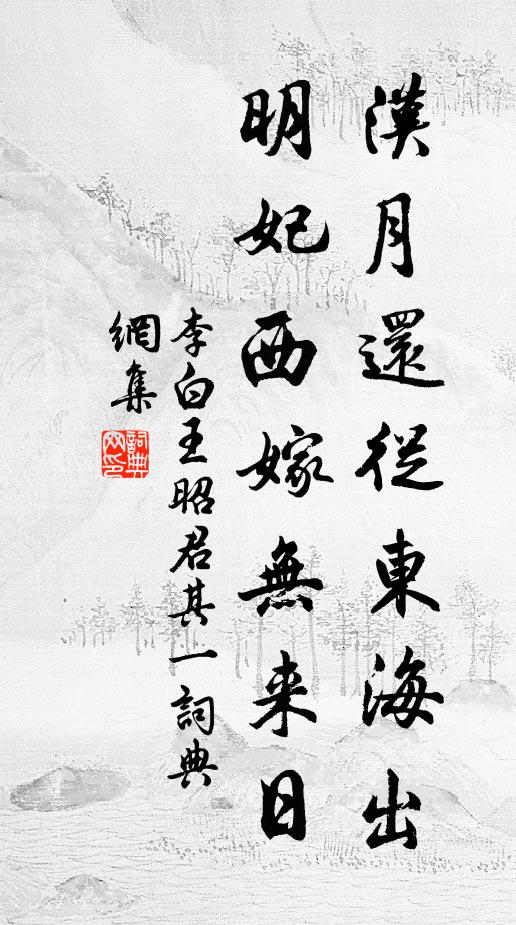 漢月還從東海出
明妃西嫁無来日
李白王昭君其一詞典
網集
詞典網印